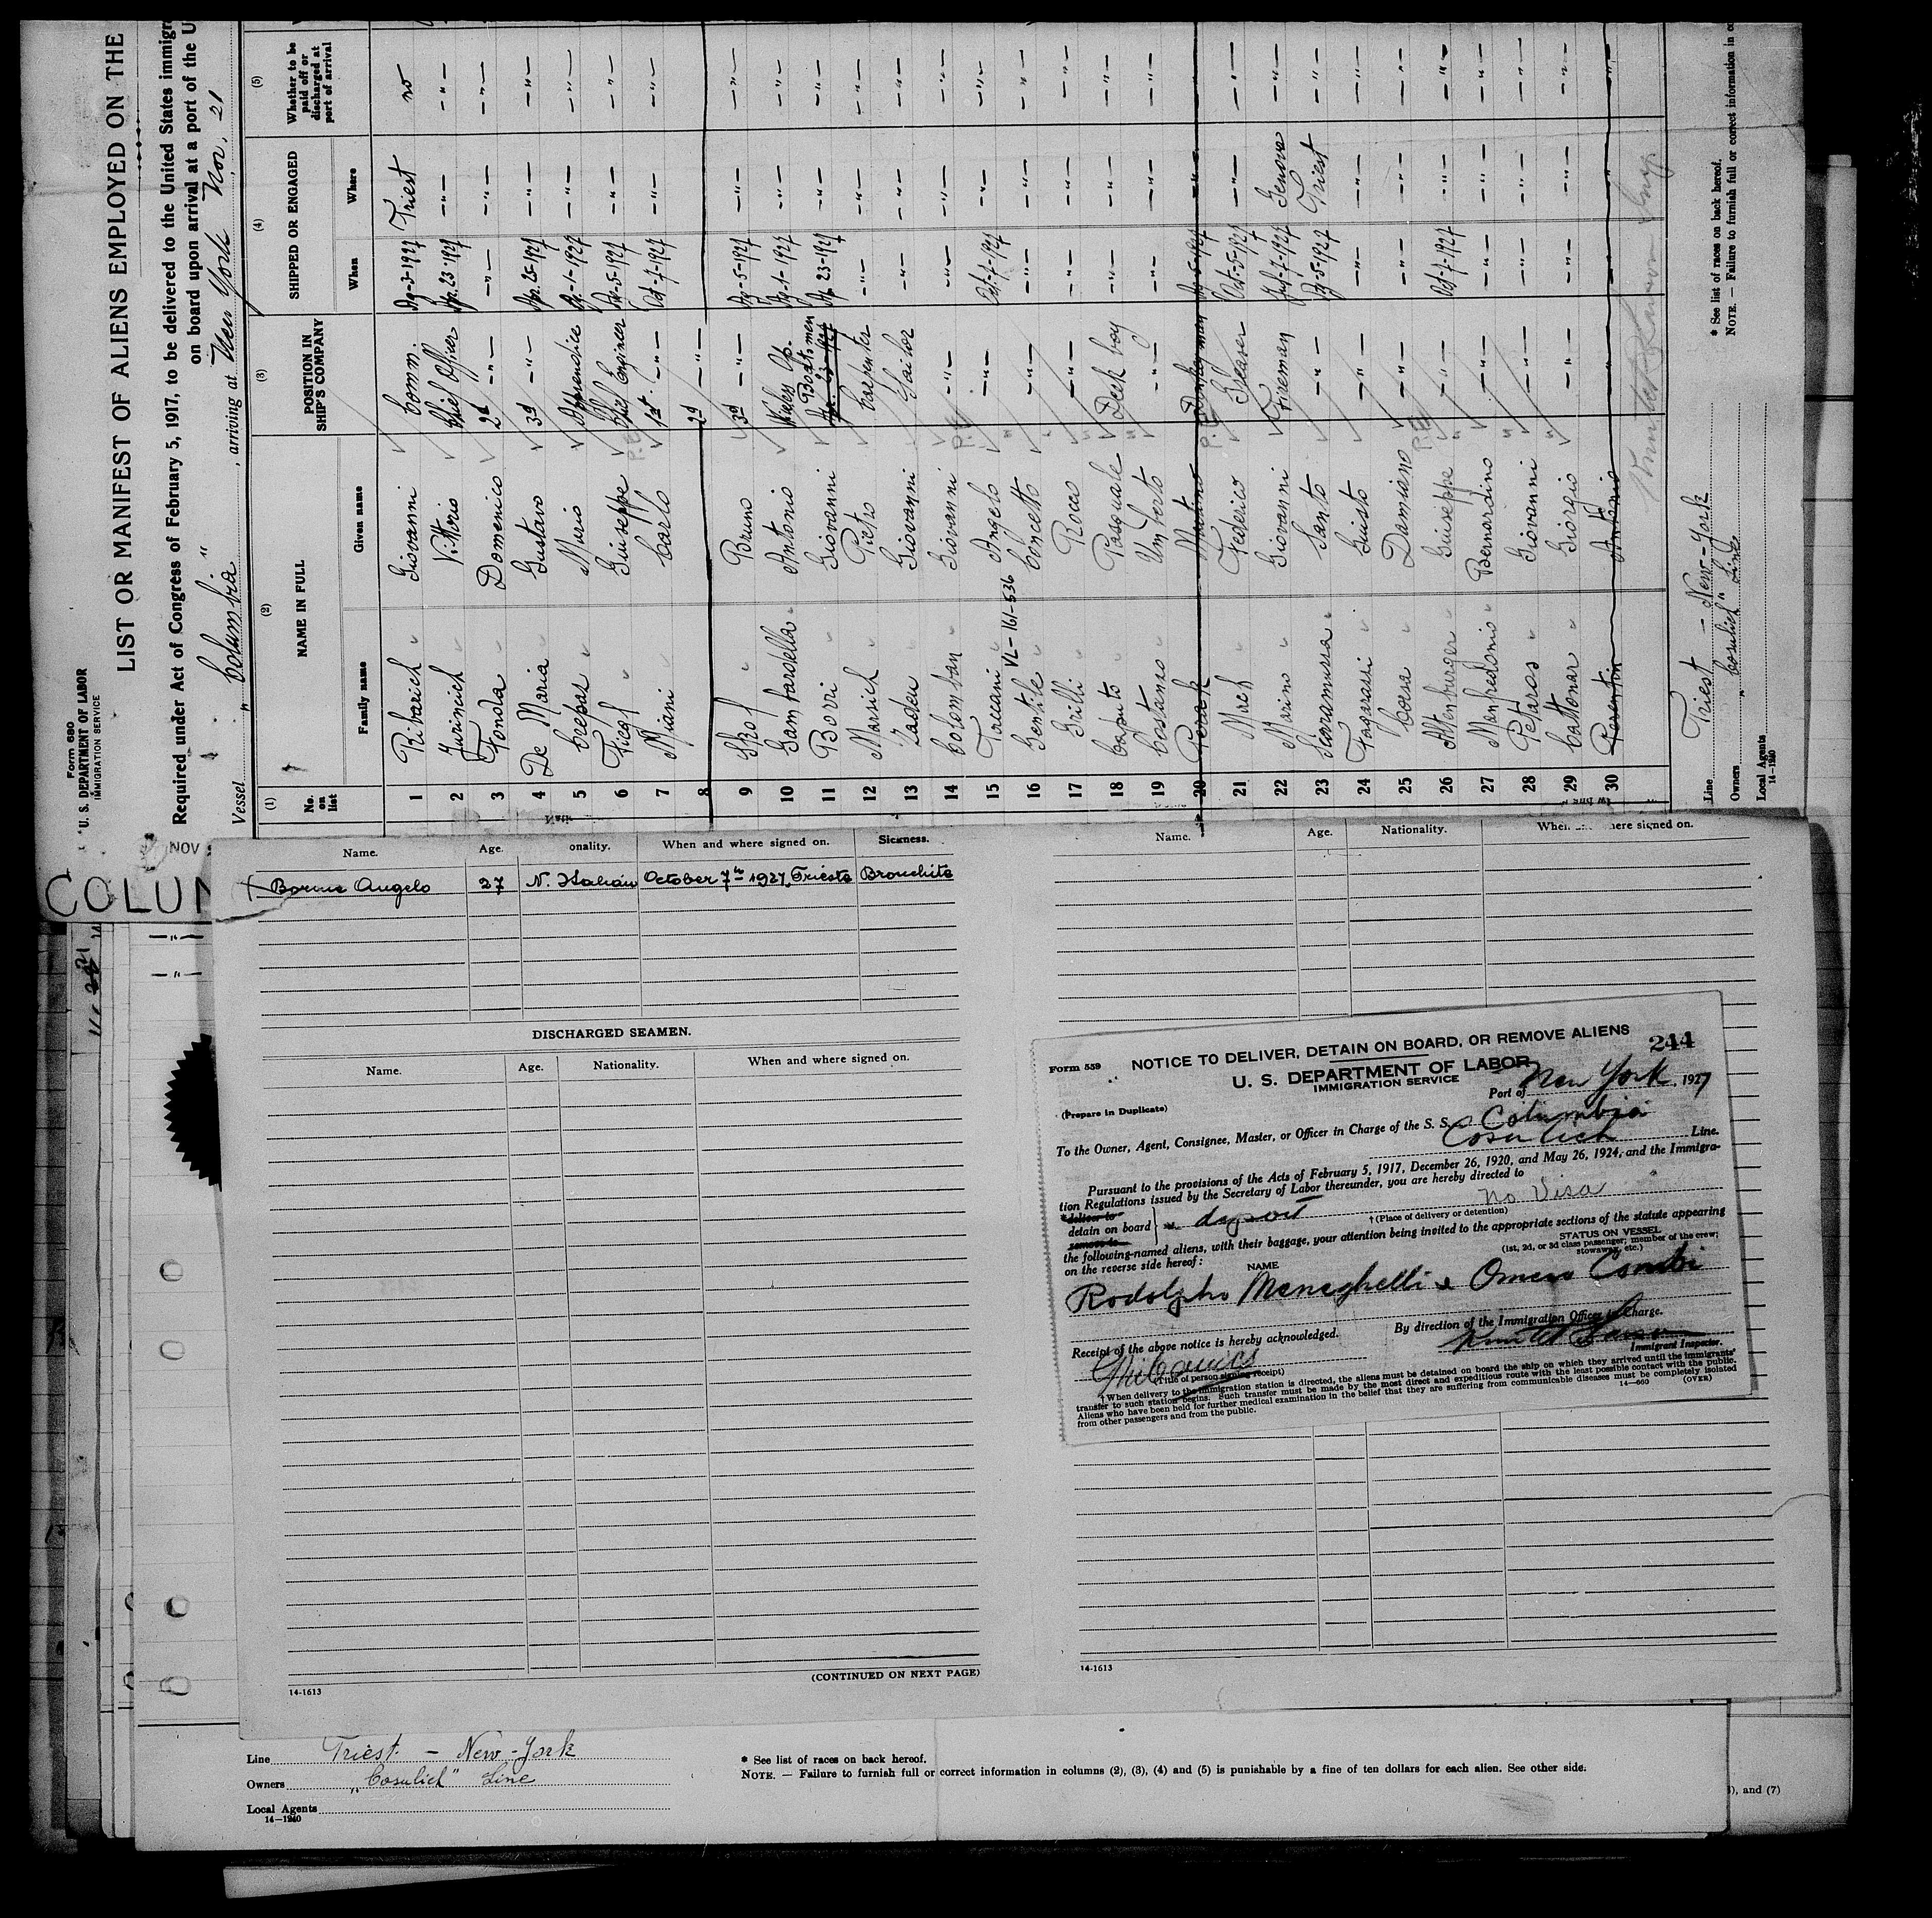 Form 680
U. S. DEPARTMENT OF LABOR
IMMIGRATION SERVICE
LIST OR MANIFEST OF ALIENS EMPLOYED ON THE
Required under Act of Congress of February 5, 1917, to be delivered to the United States immigr
on board upon arrival at a port of the U
Vessel "Columbia", arriving at New York Nov. 21
(1) (2) (3) (4) (5)
No. on list NAME IN FULL POSITION IN SHIP'S COMPANY SHIPPED OR ENGAGED Whether to be paid off or discharged at port of arrival
Family name Given name When Where
1 Ribarich Giovanni Comm. Ag-3-1927 Triest no
2 Jurincich Vittorio Chief Officer Apr. 23-1927 -"- -"-
3 Fonda Domenico 2d -"- -"- -"- -"-
4 De Maria Gustavo 3d -"- Apr. 25-1927 -"- -"-
5 Crepaz Mario Apprendice -1-1927 -"- -"-
6 Giuseppe Chief Engineer -5-1927 -"- -"-
7 Miani Carlo 1st -"- Oct-7-1927 -"- -"-
8 2d -"-
9 Skof Bruno 3d -"- Ag-5-1927 -"- -"-
10 Gambardella Antonio Wireless Op. Ag-1-1927 -"- -"-
11 Bovri Giovanni Boatsmen Ap. 23-1927 -"- -"-
12 Marsich Pietro Carpenter -"- -"- -"-
13 Zadeu Giovanni Sailor -"- -"- -"-
14 Colomban Giovanni -"- -"- -"- -"-
15 Taccani Angelo -"- Oct-7-1927 -"- -"-
VL-161-536
16 Gentile Concetto -"- -"- -"- -"-
17 Grilli Rocco -"- -"- -"- -"-
18 Caputo Pasquale Deck boy -"- -"- -"-
19 Costanzo Umberto -"- -"- -"- -"-
20 Perak Martino Donkeyman Ag-5-1927 -"- -"-
21 Mrch Federico Greaser Oct-5-1927 -"- -"-
22 Marino Giovanni Fireman -7-1927 Genova -"-
23 Scaramussa Santo -"- Ag-5-1927 Triest -"-
24 Fagarassi Giusto -"- -"- -"- -"-
25 Corsa Damiano -"- -"- -"- -"-
26 Altenburger Giuseppe -"- Oct-7-1927 -"- -"-
27 Manfredonio Bernardino -"- -"- -"- -"-
28 Petaros Giovanni -"- -"- -"- -"-
29 Cattonar Giorgio -"- -"- -"- -"-
30 Parentin Antonio " -"-
Line Triest - New-York
Owners "Cosulich" Line
Local Agents
14-1240
* See list of races on back hereof.
NOTE. — Failure to furnish full or correct information in co
NOV
COLUM
Name. Age. onality. When and where signed on. Sickness.
Angelo 27 N. Italian October 7th 1927, Trieste Bronchite
DISCHARGED SEAMEN.
Name. Age. Nationality. When and where signed on.
(CONTINUED ON NEXT PAGE)
14-1613
Name. Age. Nationality. When here signed on.
Form 559
NOTICE TO DELIVER, DETAIN ON BOARD, OR REMOVE ALIENS 244
U. S. DEPARTMENT OF LABOR
IMMIGRATION SERVICE
(Prepare in Duplicate)
Port of New York, 1927
To the Owner, Agent, Consignee, Master, or Officer in Charge of the S. S. Columbia
Cosulich Line.
Pursuant to the provisions of the Acts of February 5, 1917, December 26, 1920, and May 26, 1924, and the Immigra-
tion Regulations issued by the Secretary of Labor thereunder, you are hereby directed to
*deliver to
detain on board
remove to
deport no Visa
†(Place of delivery or detention)
the following-named aliens, with their baggage, your attention being invited to the appropriate sections of the statute appearing
on the reverse side hereof:
NAME
STATUS ON VESSEL
(1st, 2d, or 3d class passenger; member of the crew;
stowaway, etc.)
Rodolpho Meneghelli & Omero Combi
Receipt of the above notice is hereby acknowledged.
By direction of the Immigration Officer in Charge.
Immigrant Inspector.
(Title of person signing receipt)
†When delivery to the immigration station is directed, the aliens must be detained on board the ship on which they arrived until the immigrants'
transfer to such station begins. Such transfer must be made by the most direct and expeditious route with the least possible contact with the public.
Aliens who have been held for further medical examination in the belief that they are suffering from communicable diseases must be completely isolated
from other passengers and from the public.
14—660 (OVER)
14-1613
Line Triest. - New-York
Owners "Cosulich" Line
Local Agents
14-1240
* See list of races on back hereof.
NOTE. — Failure to furnish full or correct information in columns (2), (3), (4) and (5) is punishable by a fine of ten dollars for each alien. See other side.
), and (7)